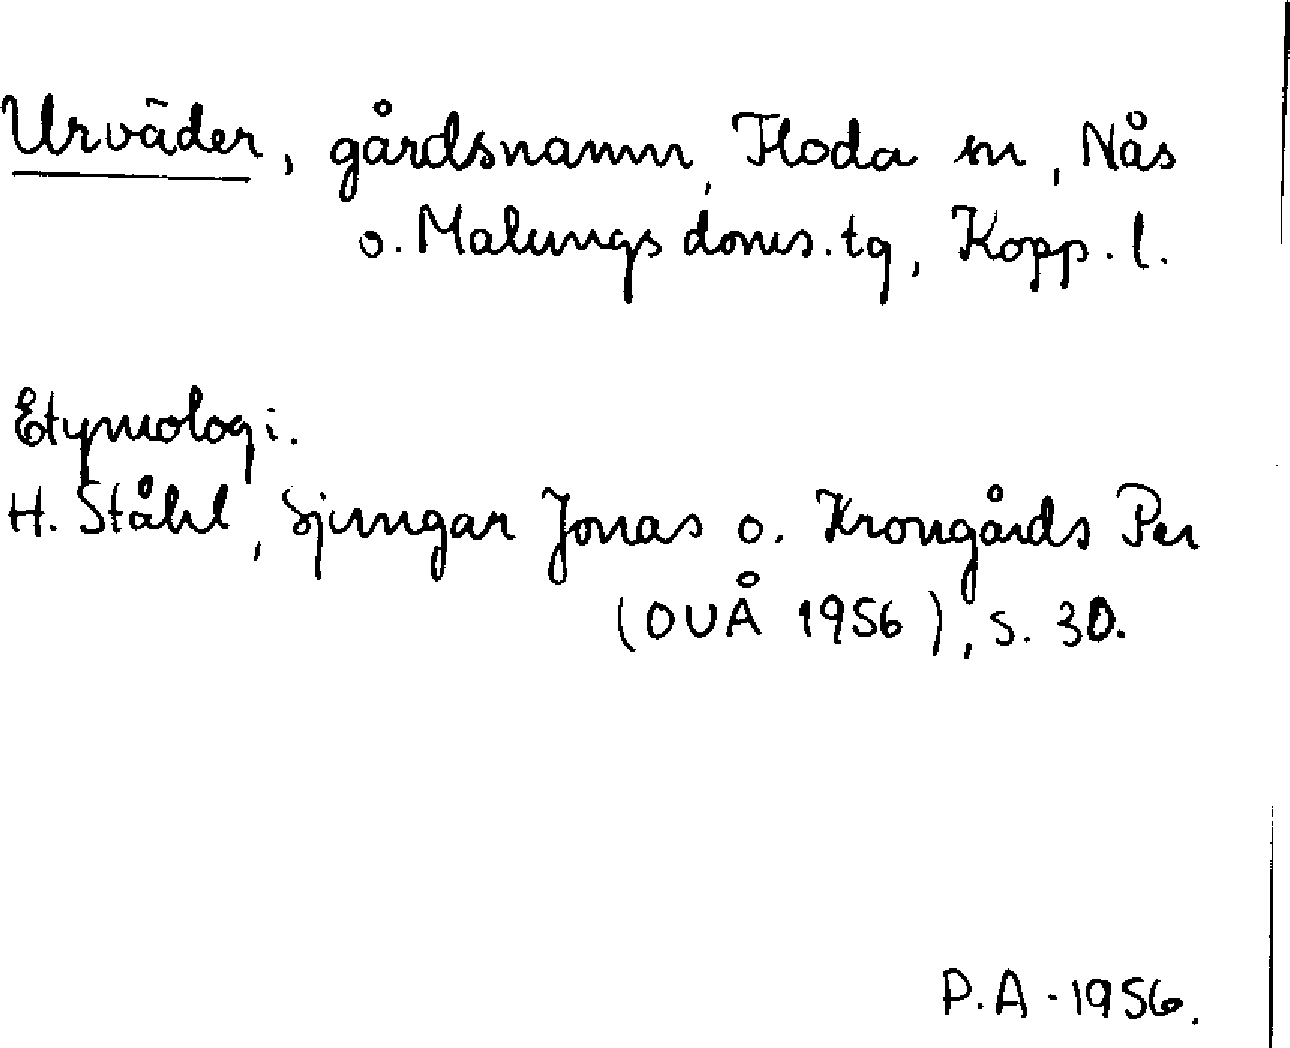 Urväder, gårdsnamn, Floda sn, Nås
o. Malungs doms.tg, Kopp. l.
Etymologi.
H. Ståhl, Sjungar Jonas o. Krongårds Per
(OUÅ 1956), s. 30.
P.A. 1956.